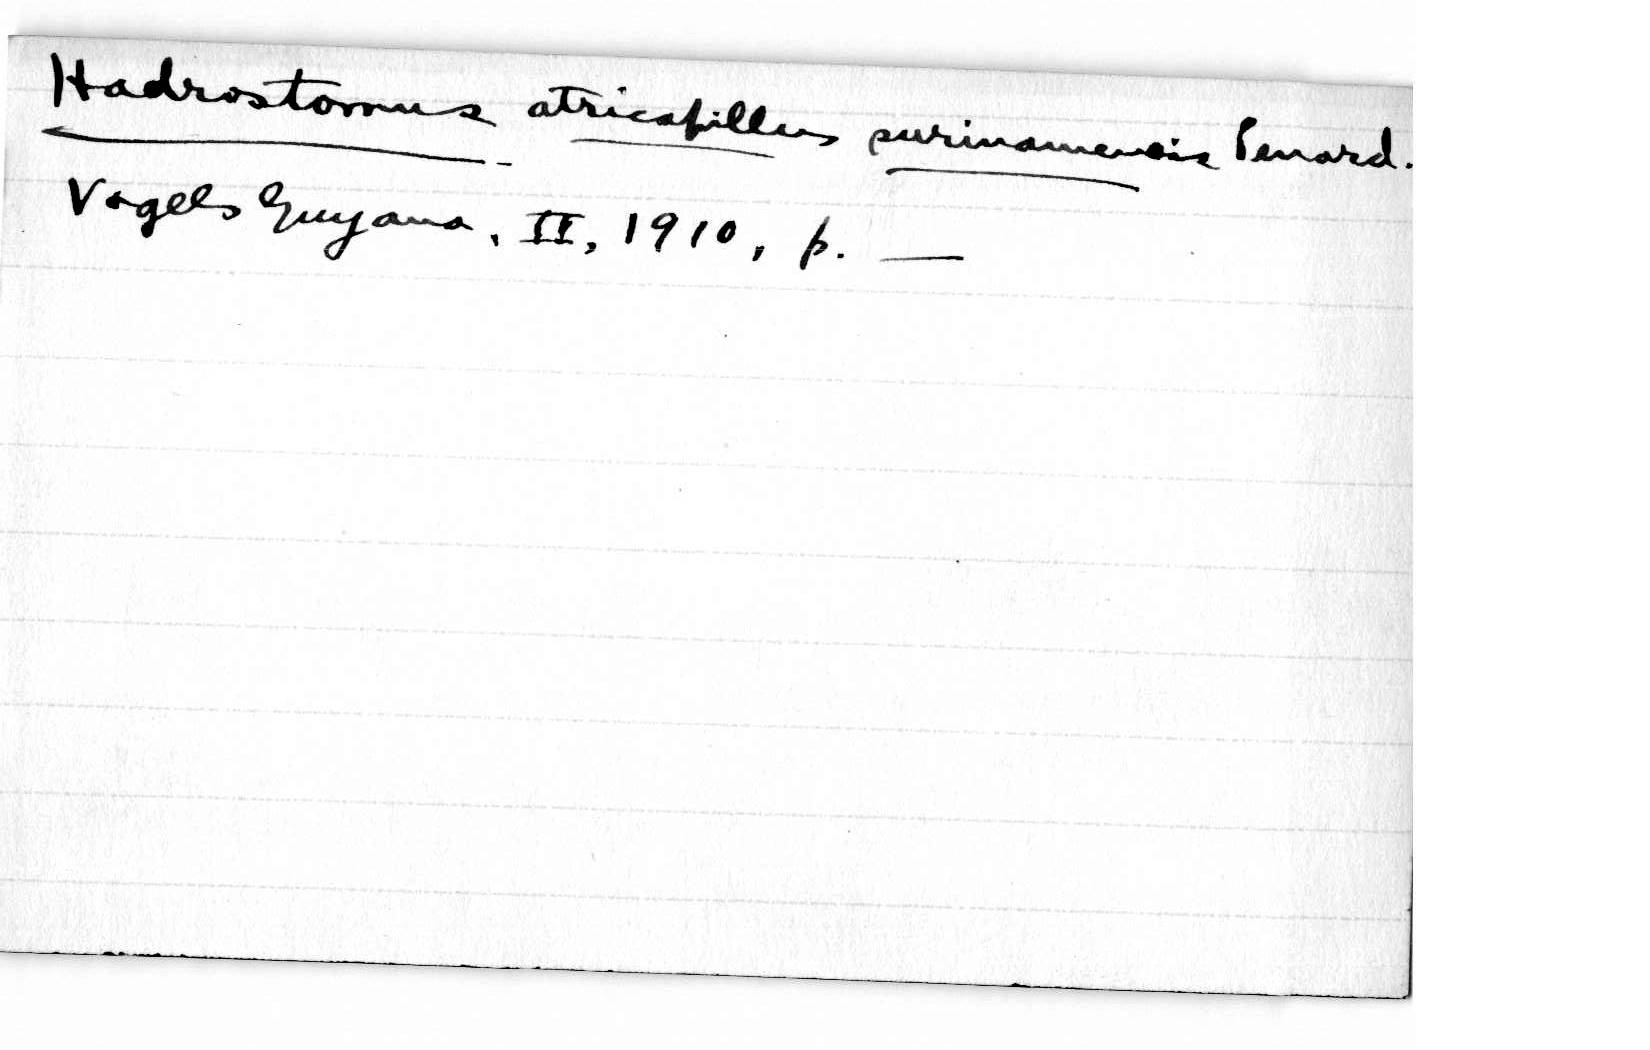 Hadrostomus atricapillus surinamensis Penard.
Vogels Guyana, II, 1910, p. —